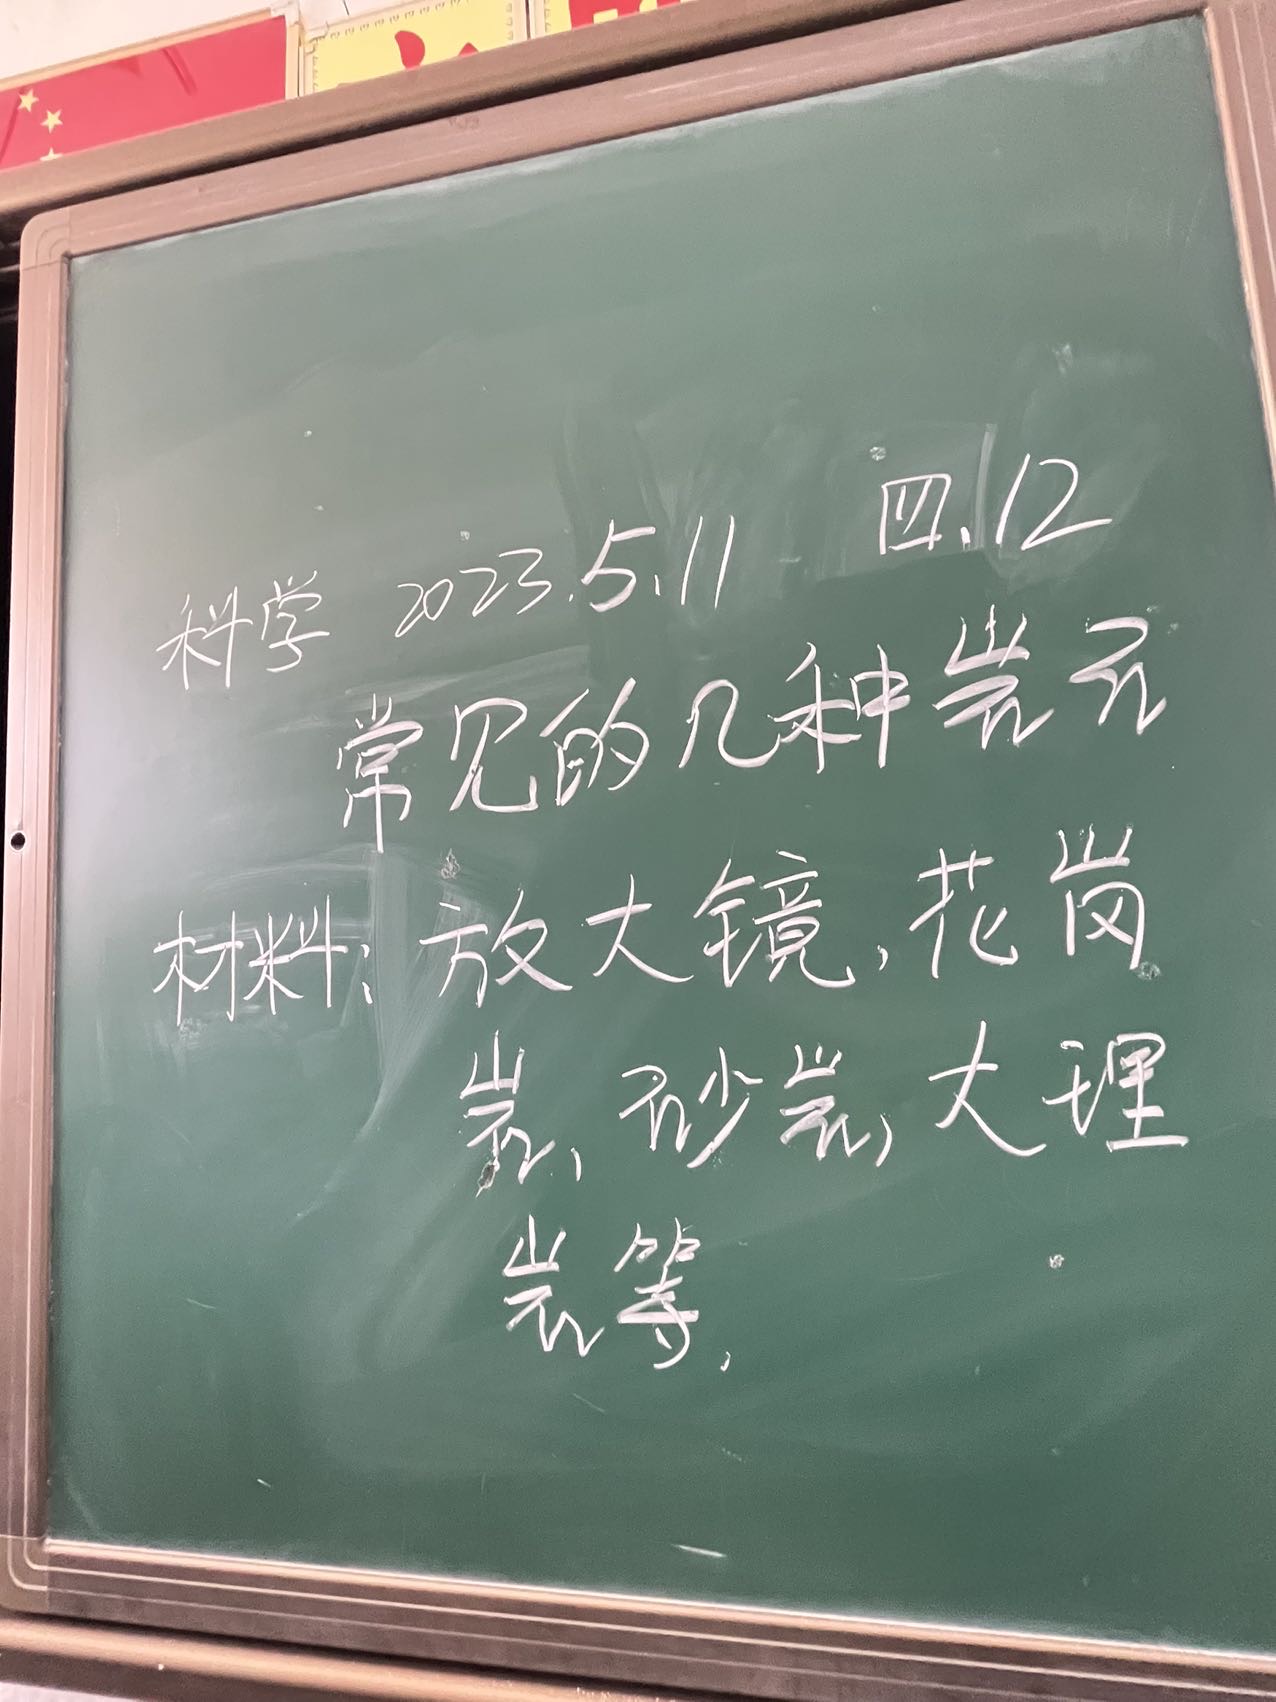 科学 2023.5.11 四.12
常见的几种岩石
材料:放大镜,花岗
岩、砂岩,大理
岩等.